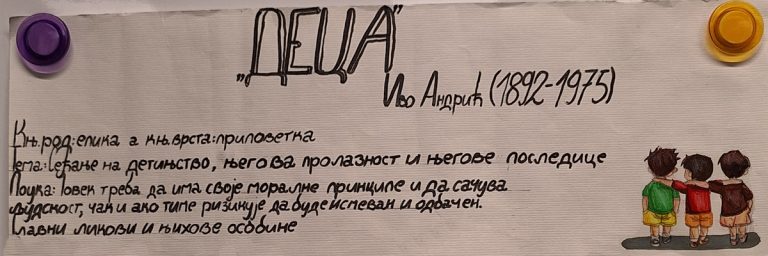 „ДЕЦА”
Иво Андрић (1892-1975)
Књ. род: епика а књ. врста: приповетка
Тема: Сећање на детињство, његова пролазност и његове последице
Поука: Човек треба да има своје моралне принципе и да сачува
људскост, чак и ако тиме ризикује да буде исмеван и одбачен.
Главни ликови и њихове особине